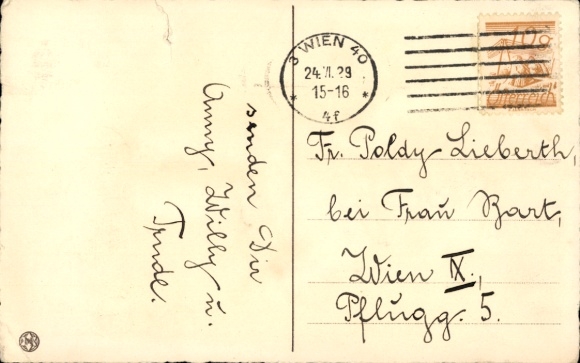 3 WIEN 40
24.VI.29
15-16
* 4f *
10g
Österreich
Fr. Poldy Lieberth,
bei Frau Bart,
Wien IX.,
Pflugg. 5.
senden Dir
Anny, Willy u.
Trude.